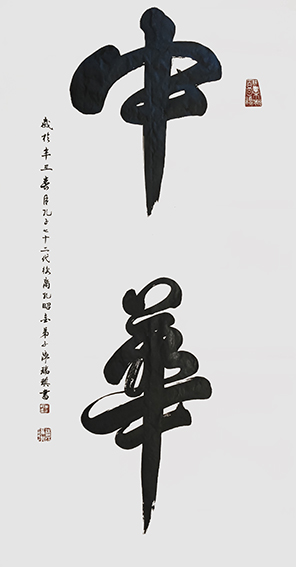 中華
歲於辛丑春月孔子七十二代後裔孔昭金弟子瑞琪書